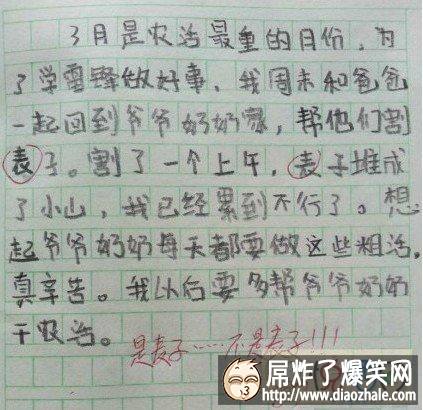 3月是农活最重的日份,为
了学雷锋做好事,我周末和爸爸
一起回到爷爷奶奶家,帮他们割
表子。割了一个上午,表子堆成
了小山,我已经累到不行了。想
起爷爷奶奶每天都要做这些粗活,
真辛告。我以后要多帮爷爷奶奶
干农活。
是麦子……不是表子!!!
屌炸了爆笑网
www.diaozhale.com